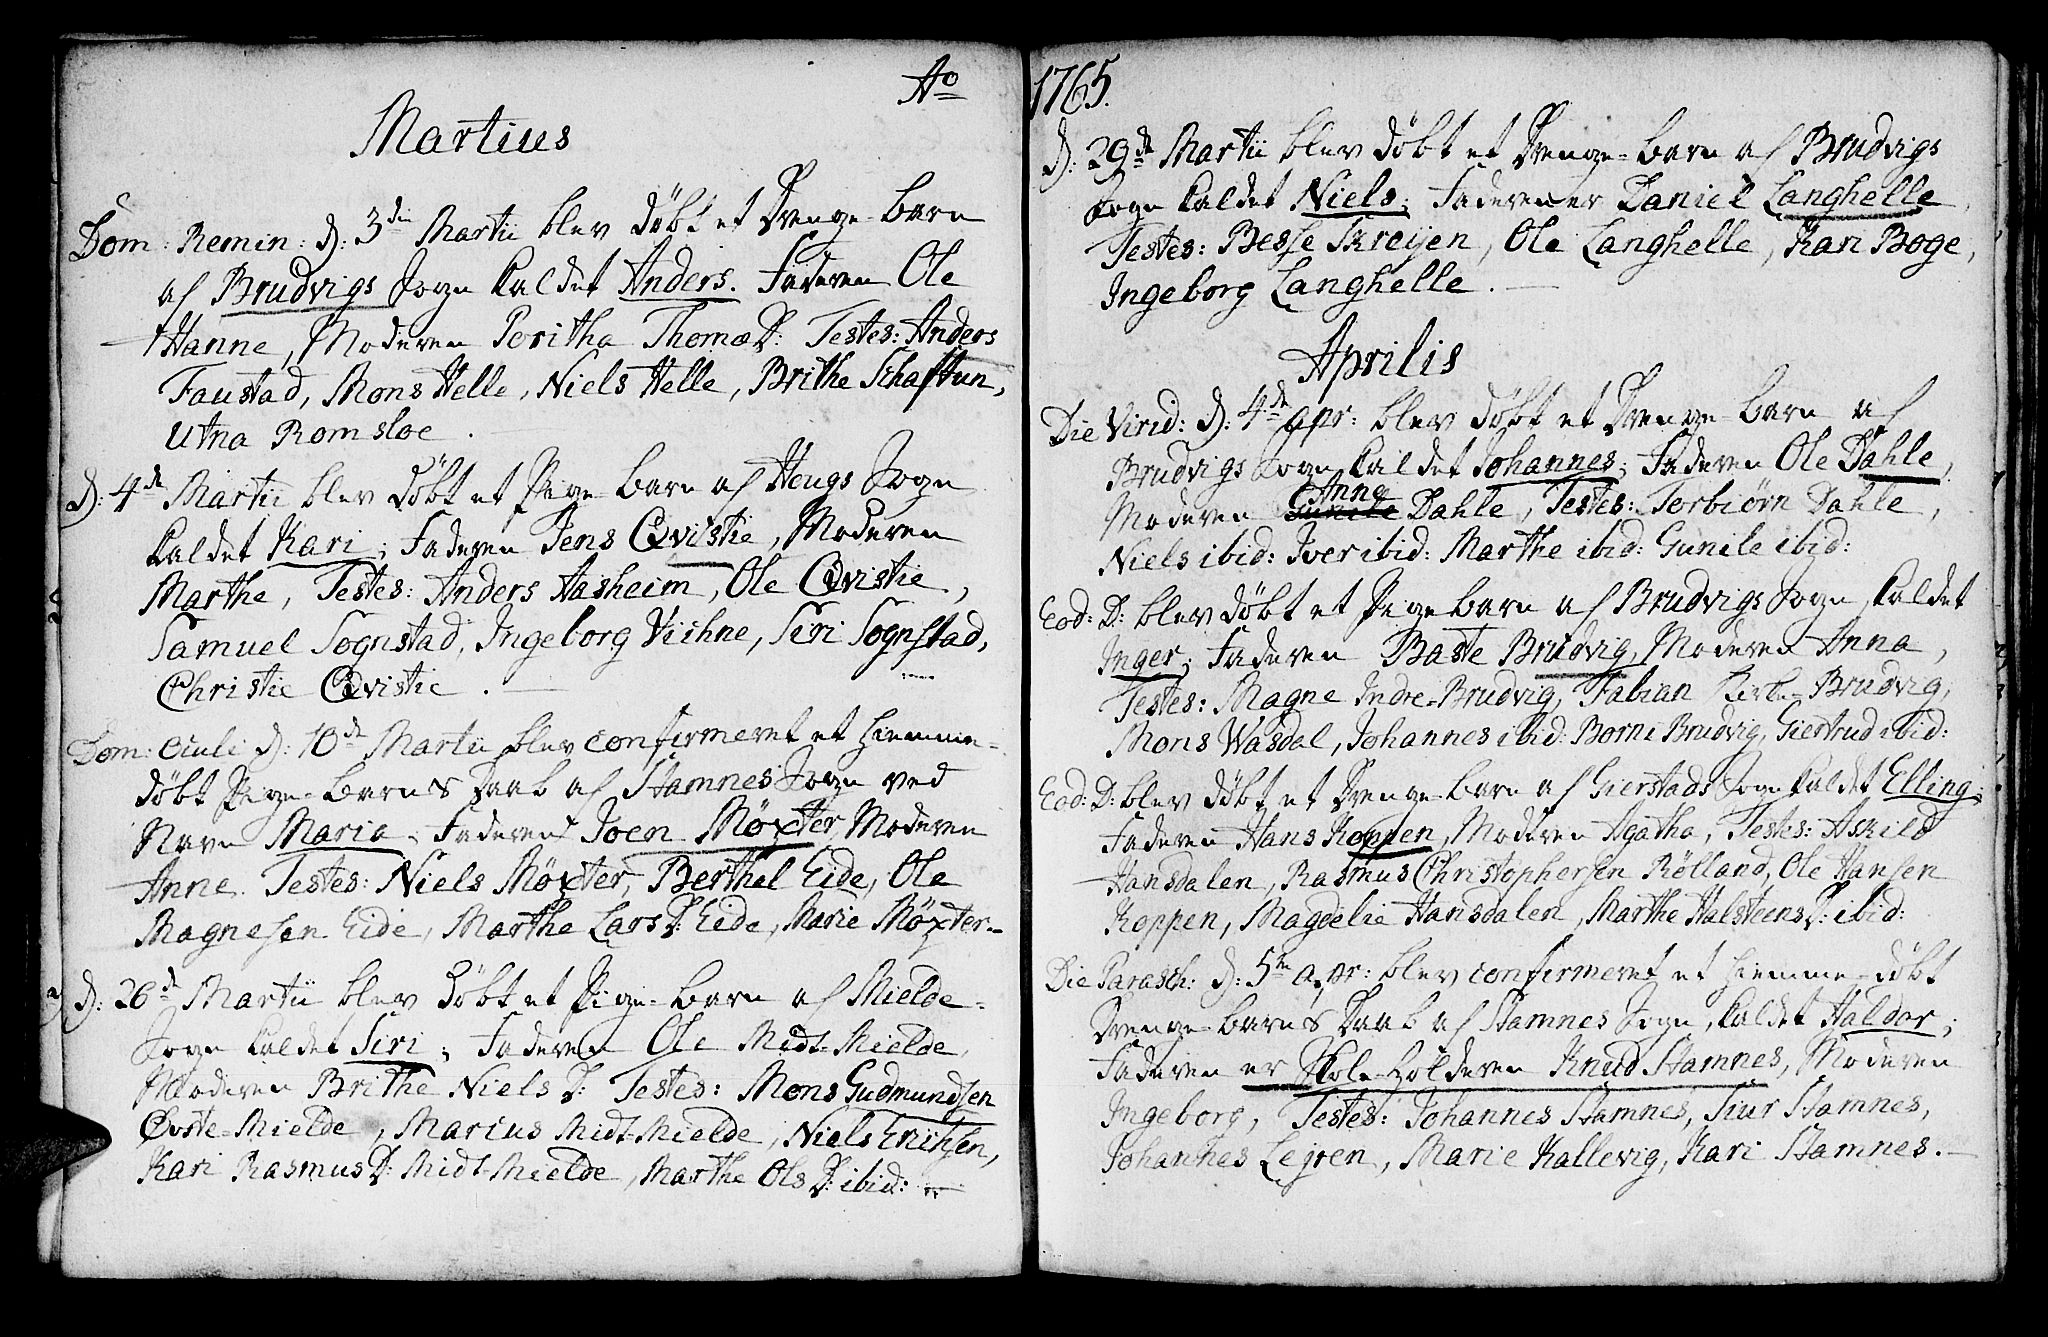 Ao
Martius
Dom: Remin: d: 3die Martii blev døbt et Drenge-barn
af Brudvigs Sogn kaldet Anders. Faderen Ole
Hanne, Moderen Peritha ThomæD: Testes: Anders
Faustad, Mons Helle, Niels Helle, Brithe Schaftun,
Utna Romsloe.
d: 4de Martii blev døbt et Pige-barn af Heugs Sogn
kaldet Kari; Faderen Jens Qvistie, Moderen
Marthe, Testes: Anders Aasheim, Ole Qvistie,
Samuel Sognstad, Ingeborg Viihne, Siri Sognstad,
Christie Qvistie.
Dom: Oculi d: 10de Martii blev confirmeret et hiemme-
døbt Pige-barns Daab af Stamnes Sogn ved
Navn Maria, Faderen Joen Møxter, Moderen
Anne. Testes: Niels Møxter, Berthel Eide, Ole
Magnesen Eide, Marthe LarsD: Eide, Marie Møxter.-
d: 26de Martii blev døbt et Pige-barn af Mielde-
Sogn kaldet Siri; Faderen Ole Midt-Mielde,
Moderen Brithe NielsD: Testes: Mons Gudmundsen
Øvste-Mielde, Marius Midt-Mielde, Niels Erichsen,
Kari RasmusD: Midt-Mielde, Marthe OlsD: ibid:
1765.
d: 29de Martii blev døbt et Drenge-barn af Brudvigs
Sogn kaldet Niels; Faderen er Daniel Langhelle,
Testes: Besse Skreijen, Ole Langhelle, Kari Boge,
Ingeborg Langhelle.
Aprilis
Die Virid: d: 4de apr: blev døbt et Drenge-barn af
Brudvigs Sogn kaldet Johannes; Faderen Ole Dahle,
Moderen Gunile Anna Dahle, Testes: Torbiørn Dahle,
Niels ibid: Iver ibid: Marthe ibid: Gunile ibid:
Eod: D: blev døbt et Pige barn af Brudvigs Sogn kaldet
Inger; Faderen Baste Brudvig, Moderen Anna,
Testes: Magne Indre-Brudvig, Fabian Kirke-Brudvig,
Mons Wasdal, Johannes ibid: Borni Brudvig, Giertrud ibid:
Eod: D: blev døbt et Drenge-barn af Gierstads Sogn kaldet Elling;
Faderen Hans Koppen, Moderen Agatha, Testes: Askild
Hansdalen, Rasmus Christophersen Rølland, Ole Hansen
Koppen, Magdelie Hansdalen, Marthe HalsteensD: ibid:
Die Parasch: d: 5te apr: blev confirmeret et hiemme-døbt
Drenge-barns Daab af Stamnes Sogn, kaldet Haldor;
Faderen er Skole-holderen Knud Stamnes, Moderen
Ingeborg, Testes: Johannes Stamnes, Siur Stamnes,
Johannes Lejren, Marie Kallevig, Kari Stamnes.